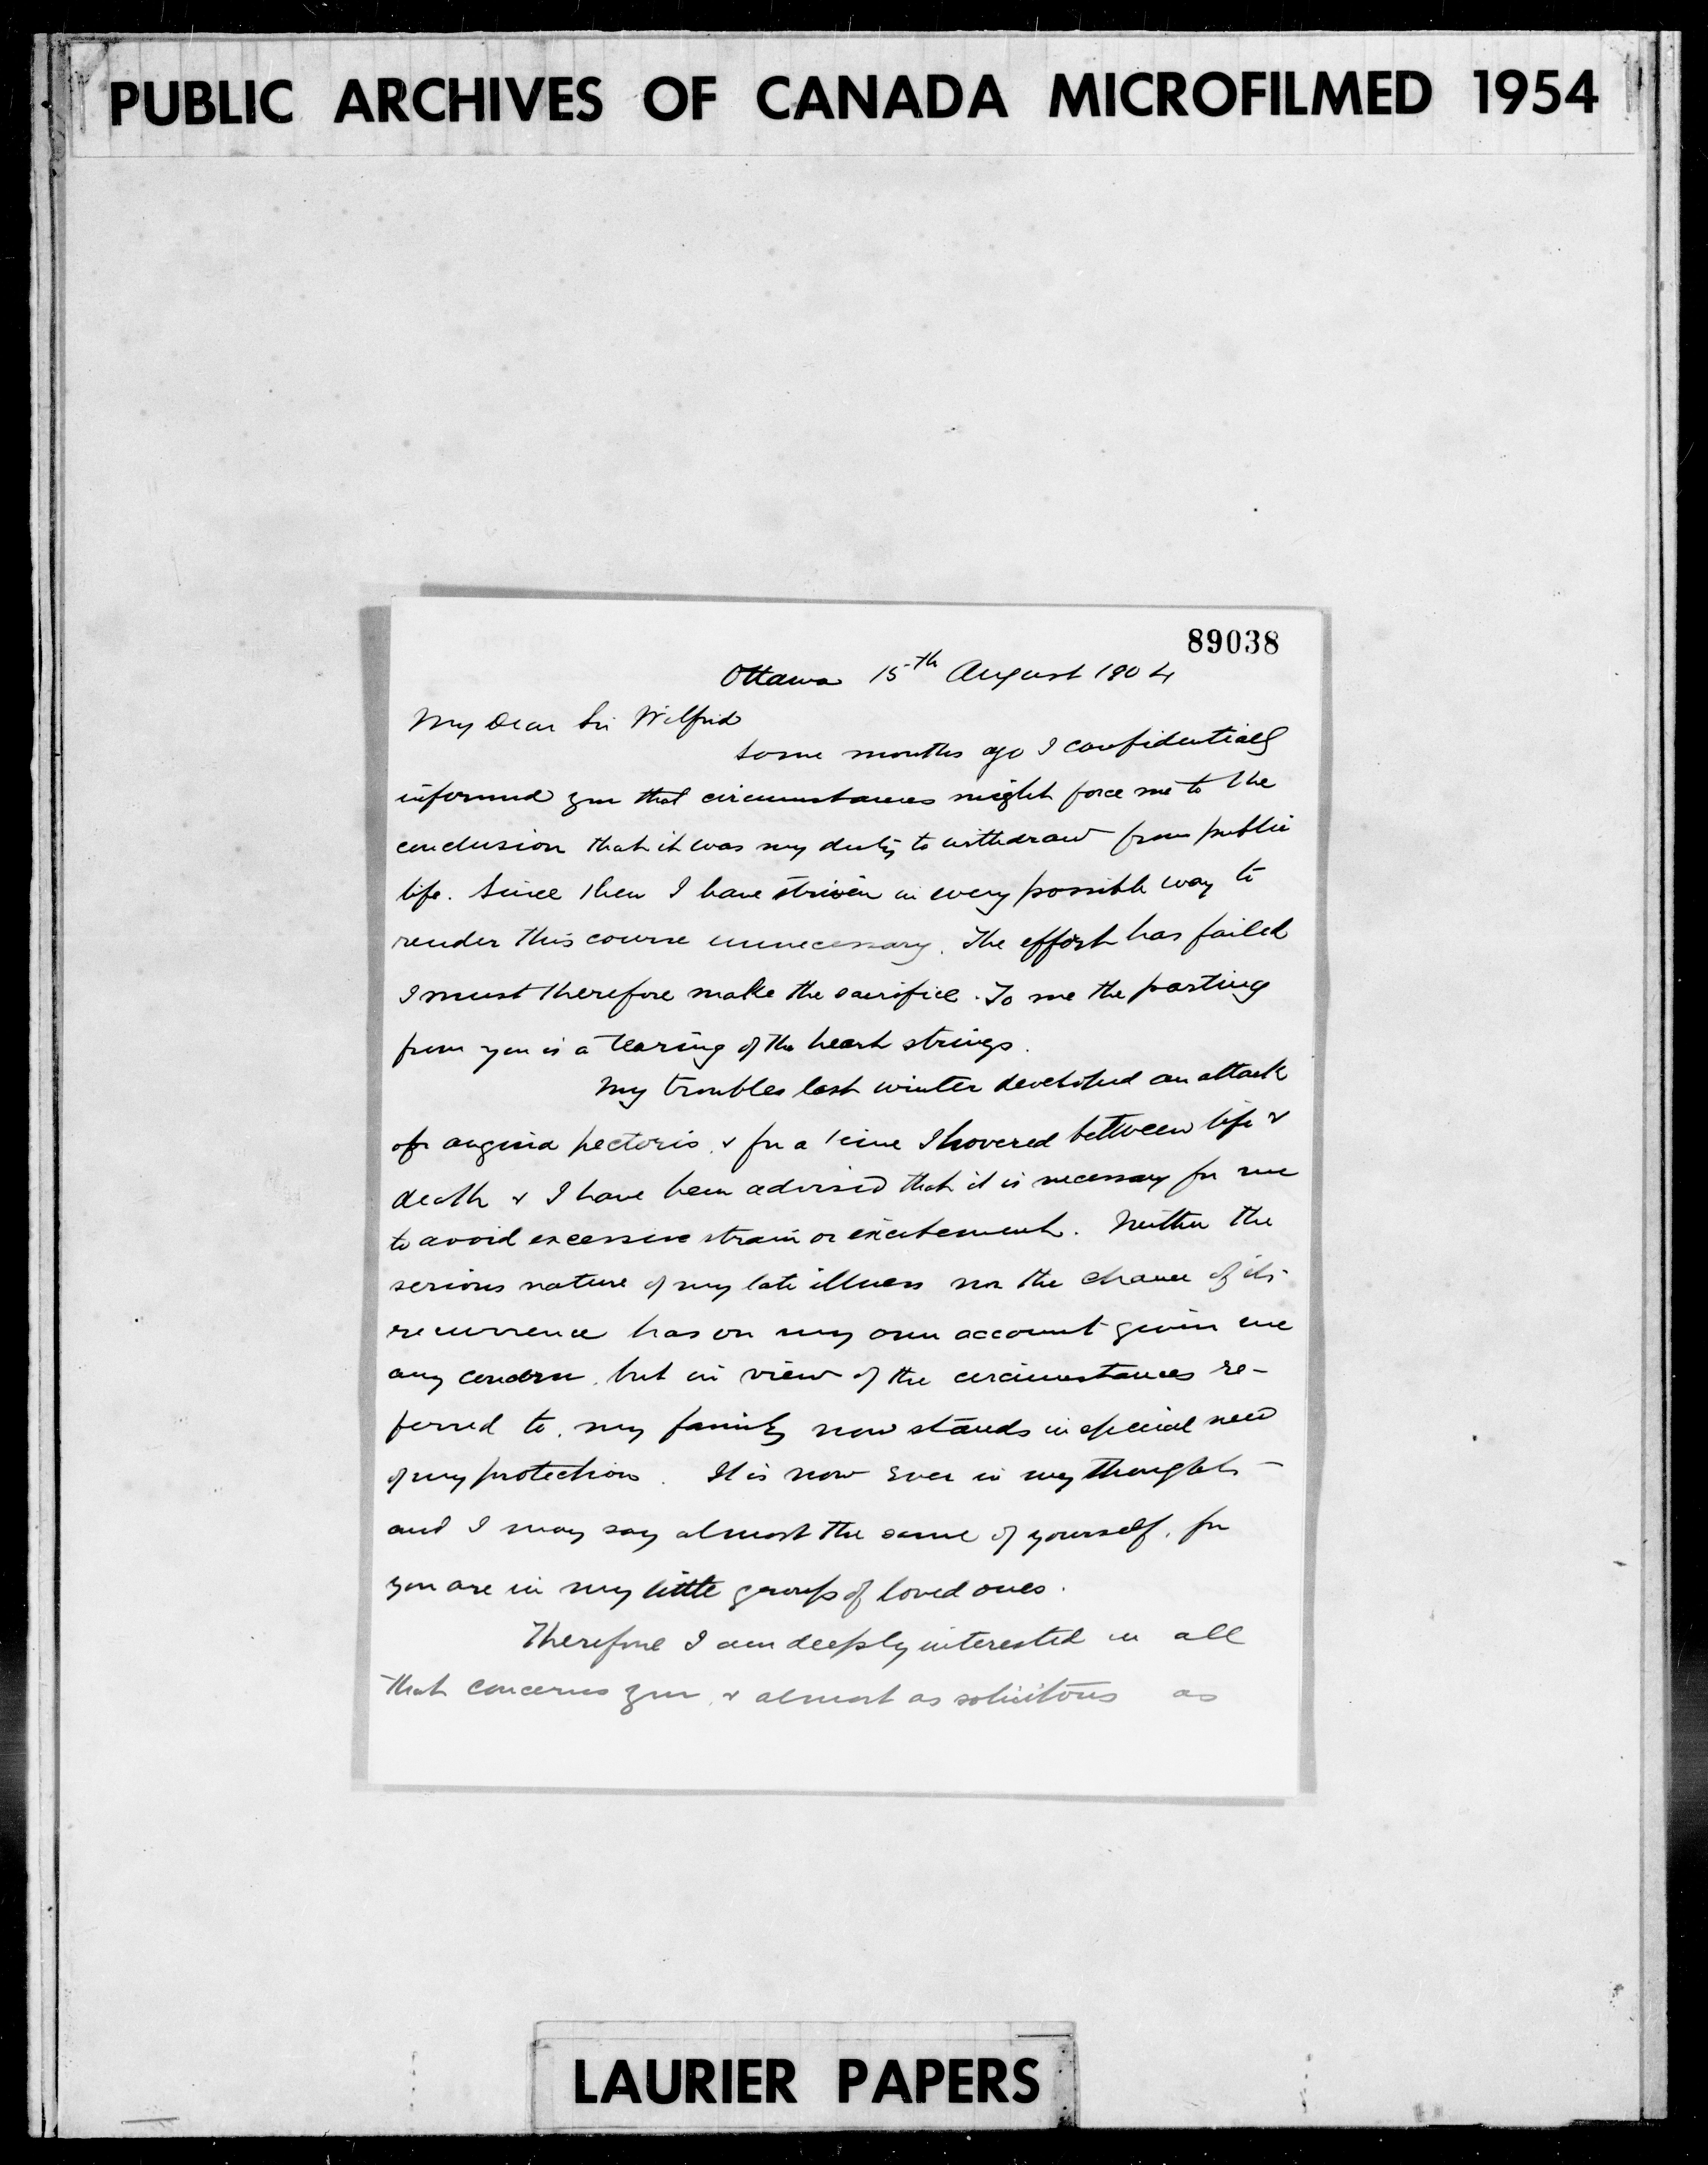 PUBLIC ARCHIVES OF CANADA MICROFILMED 1954
89038
Ottawa 15th August 1904
My Dear Sir Wilfrid
Some months ago I confidentially
informed you that circumstances might force me to the
conclusion that it was my duty to withdraw from public
life. Since then I have striven in every possible way to
render this course unnecessary. The effort has failed
I must therefore make the sacrifice. To me the parting
from you is a tearing of the heart strings.
My troubles last winter developed an attack
of angina pectoris, & for a time I hovered between life &
death & I have been advised that it is necessary for me
to avoid excessive strain or excitement. Neither the
serious nature of my late illness nor the chance of its
recurrence has on my own account given me
any concern, but in view of the circumstances re-
ferred to, my family now stands in special need
of my protection. It is now ever in my thoughts -
and I may say almost the same of yourself, for
you are in my little group of loved ones.
Therefore I am deeply interested in all
that concerns you, & almost as solicitous as
LAURIER PAPERS